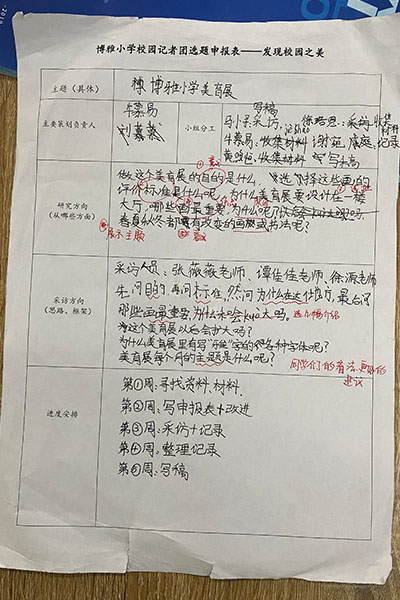 博雅小学校园记者团选题申报表——发现校园之美
主题（具体）
博雅小学美育展
主要策划负责人
牛慕易
刘慕菜
小组分工
写稿
采访
采访,收集
材料
收集材料
记录
收集材料
写稿
研究方向
（从哪些方面）
做这个美育展的目的是什么,选择这些画的
评价标准是什么呢,为什么美育展要设计在一楼
大厅,哪些画最重要,为什么呢?以后会kuo大吗?
春夏秋冬都有改变的画展或书法呢?
展示主题
采访方向
（思路、框架）
采访人员:张薇薇老师、谭佳佳老师、徐源老师
先问目的再问标准,然后问为什么在这个位置,最后问
那些画最重要,为什么
选几幅介绍
为这个美育展以后会扩大吗?
为什么美育展里有写"雅"字的很多种字体呢?
美育展每个月的主题是什么呢?
同学们的看法,更好的
建议
进度安排
第①周:寻找资料、材料.
第②周:写申报表+改进
第③周:采访+记录
第④周:整理记录
第⑤周:写稿